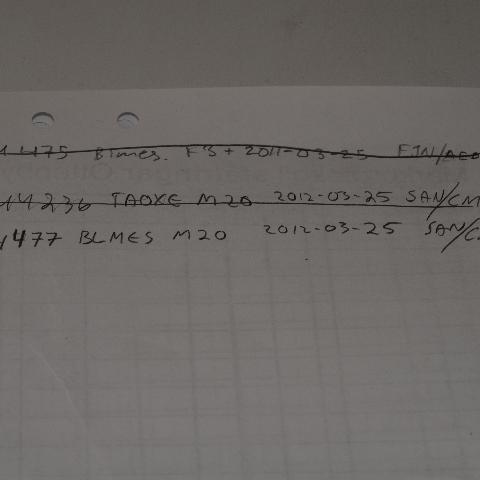 475 Blmes. F3+ 2011-03-25 FJN/AEO
44236 TAOXE M20 2012-03-25 SAN/CM
4477 BLMES M20 2012-03-25 SAN/C